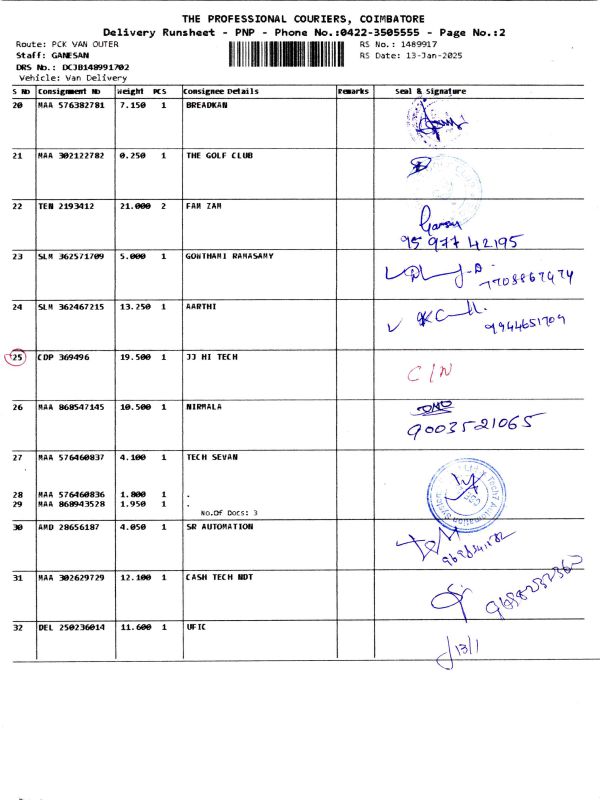 THE PROFESSIONAL COURIERS, COIMBATORE
Delivery Runsheet - PNP - Phone No.:0422-3505555 - Page No.:2
Route: PCK VAN OUTER RS No.: 1489917
Staff: GANESAN RS Date: 13-Jan-2025
DRS No.: DCJB148991702
Vehicle: Van Delivery
S No Consignment No Weight PCS Consignee Details Remarks Seal & Signature
20 MAA 576382781 7.150 1 BREADKAN
21 MAA 302122782 0.250 1 THE GOLF CLUB
22 TEN 2193412 21.000 2 FAM ZAM
95977 42195
23 SLM 362571709 5.000 1 GOWTHAMI RAMASAMY
7708867474
24 SLM 362467215 13.250 1 AARTHI
9944651709
25 CDP 369496 19.500 1 JJ HI TECH C/N
26 MAA 868547145 10.500 1 NIRMALA
9003521065
27 MAA 576460837 4.100 1 TECH SEVAN
28 MAA 576460836 1.800 1 .
29 MAA 868943528 1.950 1 .
No.Of Docs: 3
30 AMD 28656187 4.050 1 SR AUTOMATION
31 MAA 302629729 12.100 1 CASH TECH NDT
9688232360
32 DEL 250236014 11.600 1 UFIC
13/1